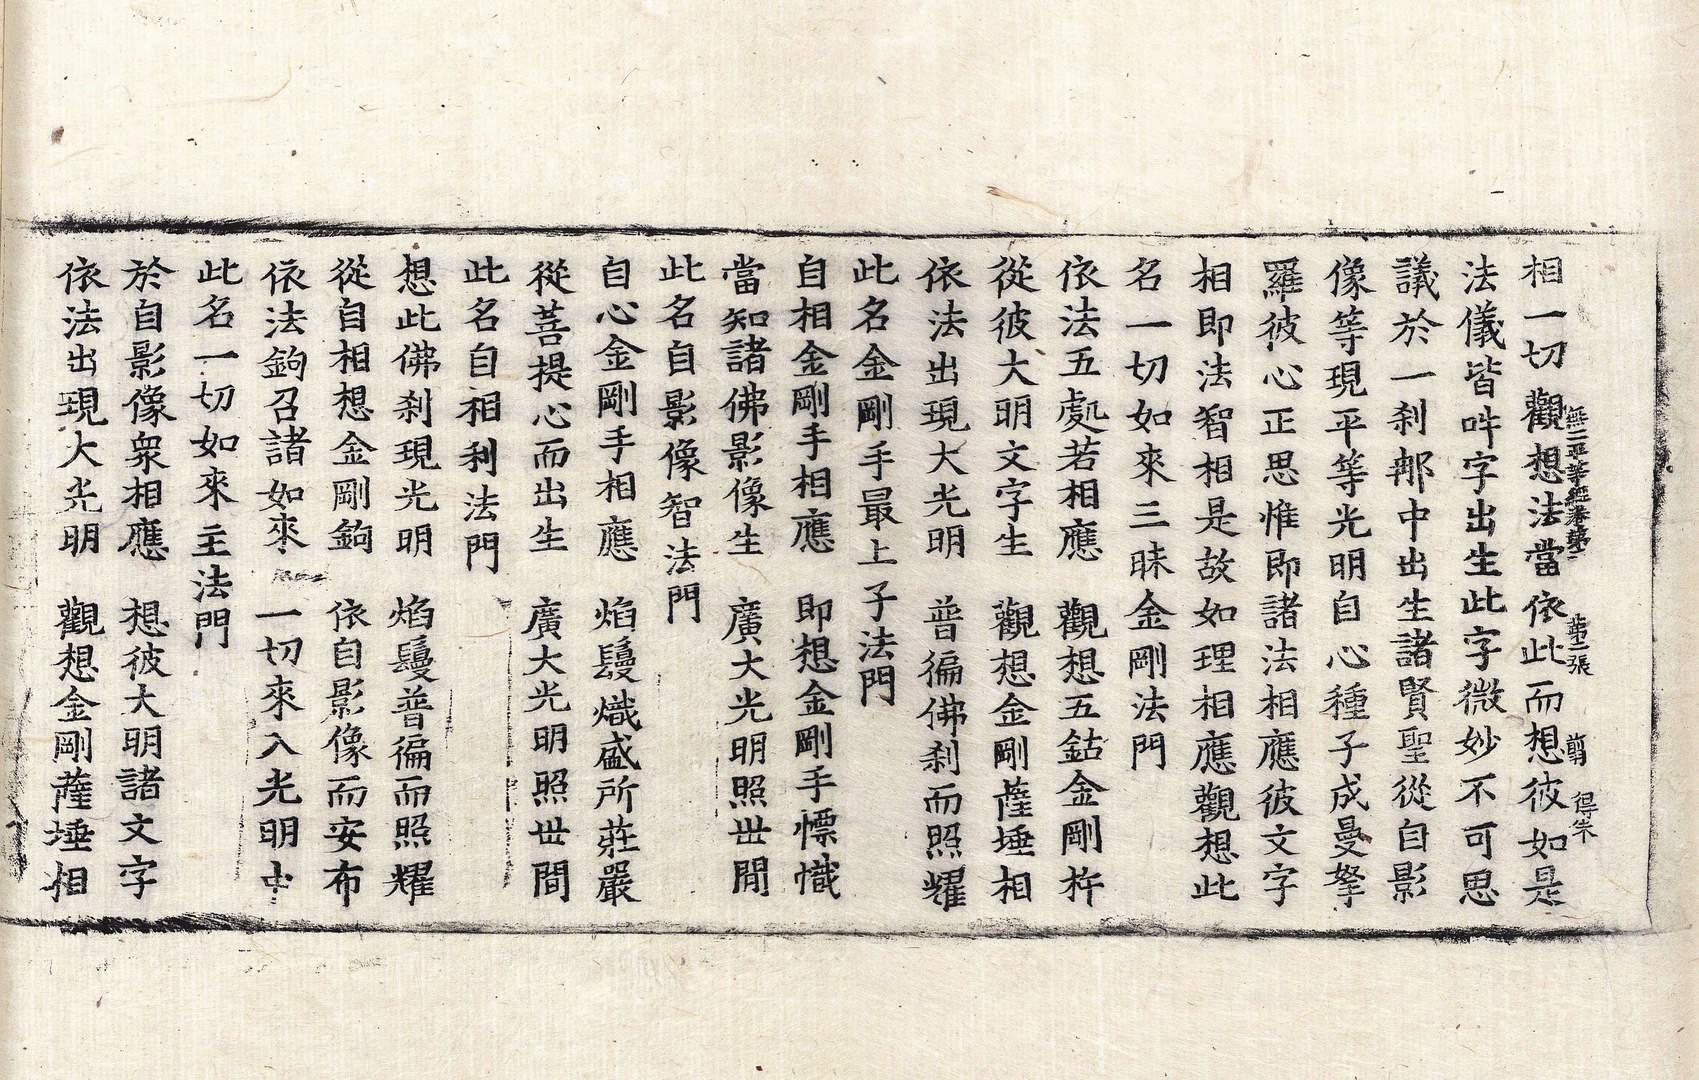 無二平等經卷第二 第二張 剪 得朱
相一切觀想法當依此而想彼如是
法儀皆吽字出生此字微妙不可思
議於一刹那中出生諸賢聖從自影
像等現平等光明自心種子成曼拏
羅彼心正思惟即諸法相應彼文字
相即法智相是故如理相應觀想此
名一切如來三昧金剛法門
依法五處若相應 觀想五鈷金剛杵
從彼大明文字生 觀想金剛薩埵相
依法出現大光明 普徧佛刹而照耀
此名金剛手最上子法門
自相金剛手相應 即想金剛手幖幟
當知諸佛影像生 廣大光明照世間
此名自影像智法門
自心金剛手相應 焰鬘熾盛所莊嚴
從菩提心而出生 廣大光明照世間
此名自相利法門
想此佛刹現光明 焰鬘普徧而照耀
從自相想金剛鉤 依自影像而安布
依法鉤召諸如來 一切來入光明中
此名一切如來主法門
於自影像衆相應 想彼大明諸文字
依法出現大光明 觀想金剛薩埵相